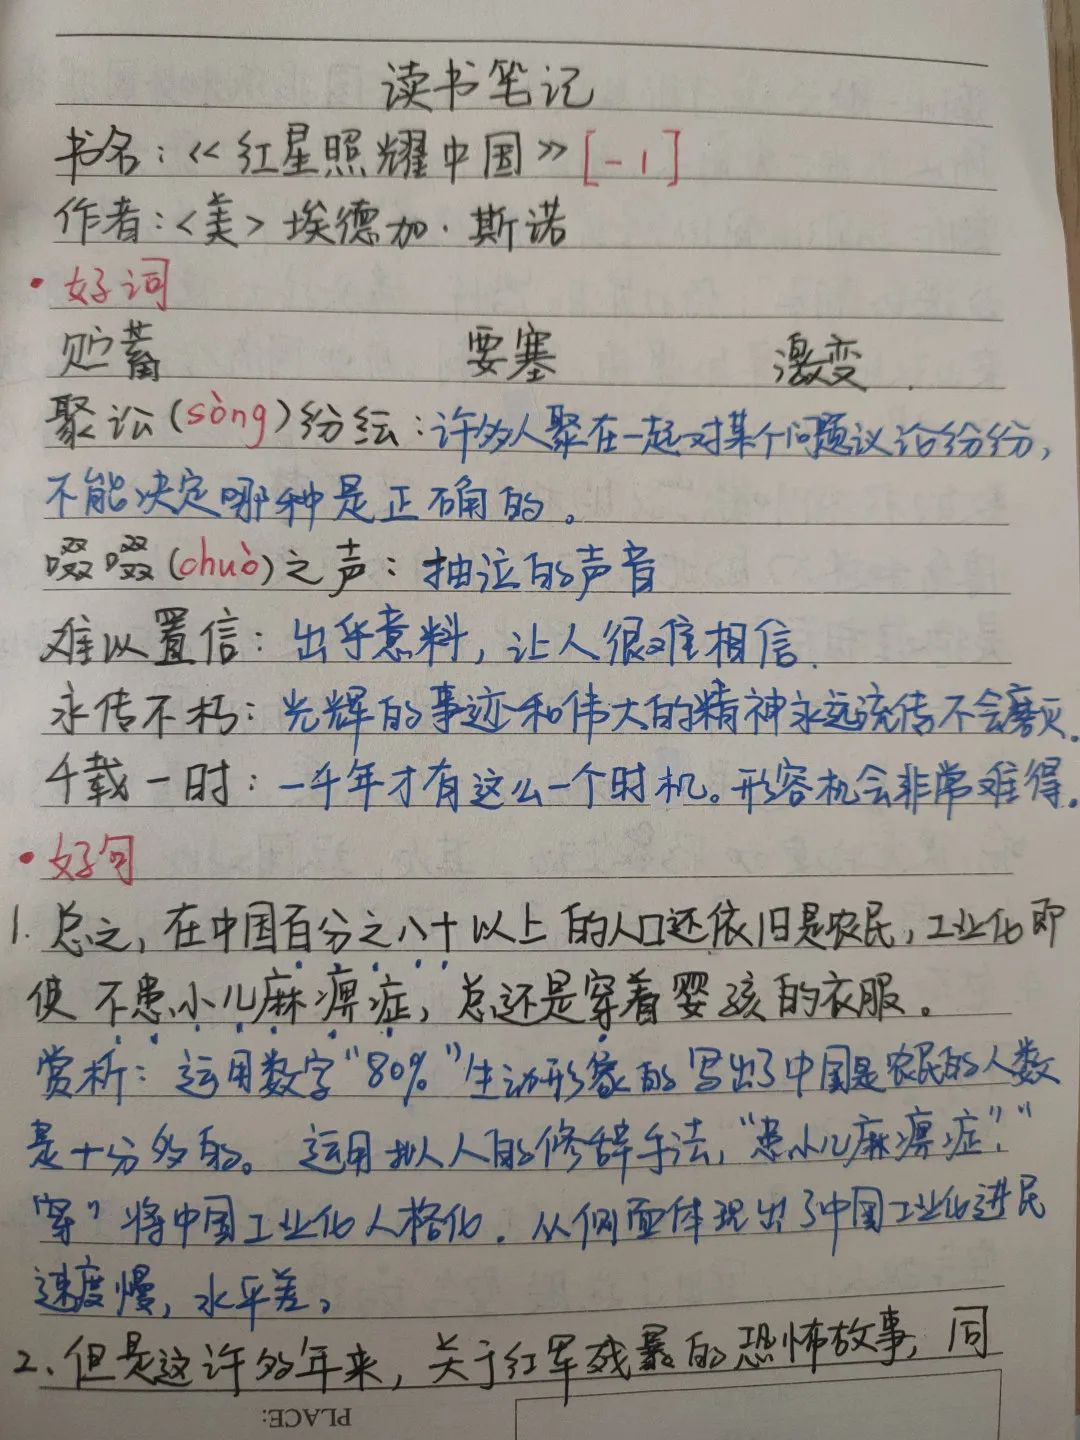 读书笔记
书名：《红星照耀中国》[-1]
作者：<美>埃德加·斯诺
·好词
贮蓄 要塞 激变
聚讼(sòng)纷纭：许多人聚在一起对某个问题议论纷纷，
不能决定哪种是正确的。
啜啜(chuò)之声：抽泣的声音
难以置信：出乎意料，让人很难相信.
永传不朽：光辉的事迹和伟大的精神永远流传不会磨灭.
千载一时：一千年才有这么一个时机。形容机会非常难得.
·好句
1. 总之，在中国百分之八十以上的人口还依旧是农民，工业化即
使不患小儿麻痹症，总还是穿着婴孩的衣服。
赏析：运用数字“80%”生动形象的写出了中国是农民的人数
是十分多的。运用拟人的修辞手法，“患小儿麻痹症”，“
穿”将中国工业化人格化. 从侧面体现出了中国工业化进民
速度慢，水平差。
2. 但是这许多年来，关于红军残暴的恐怖故事，同
PLACE: